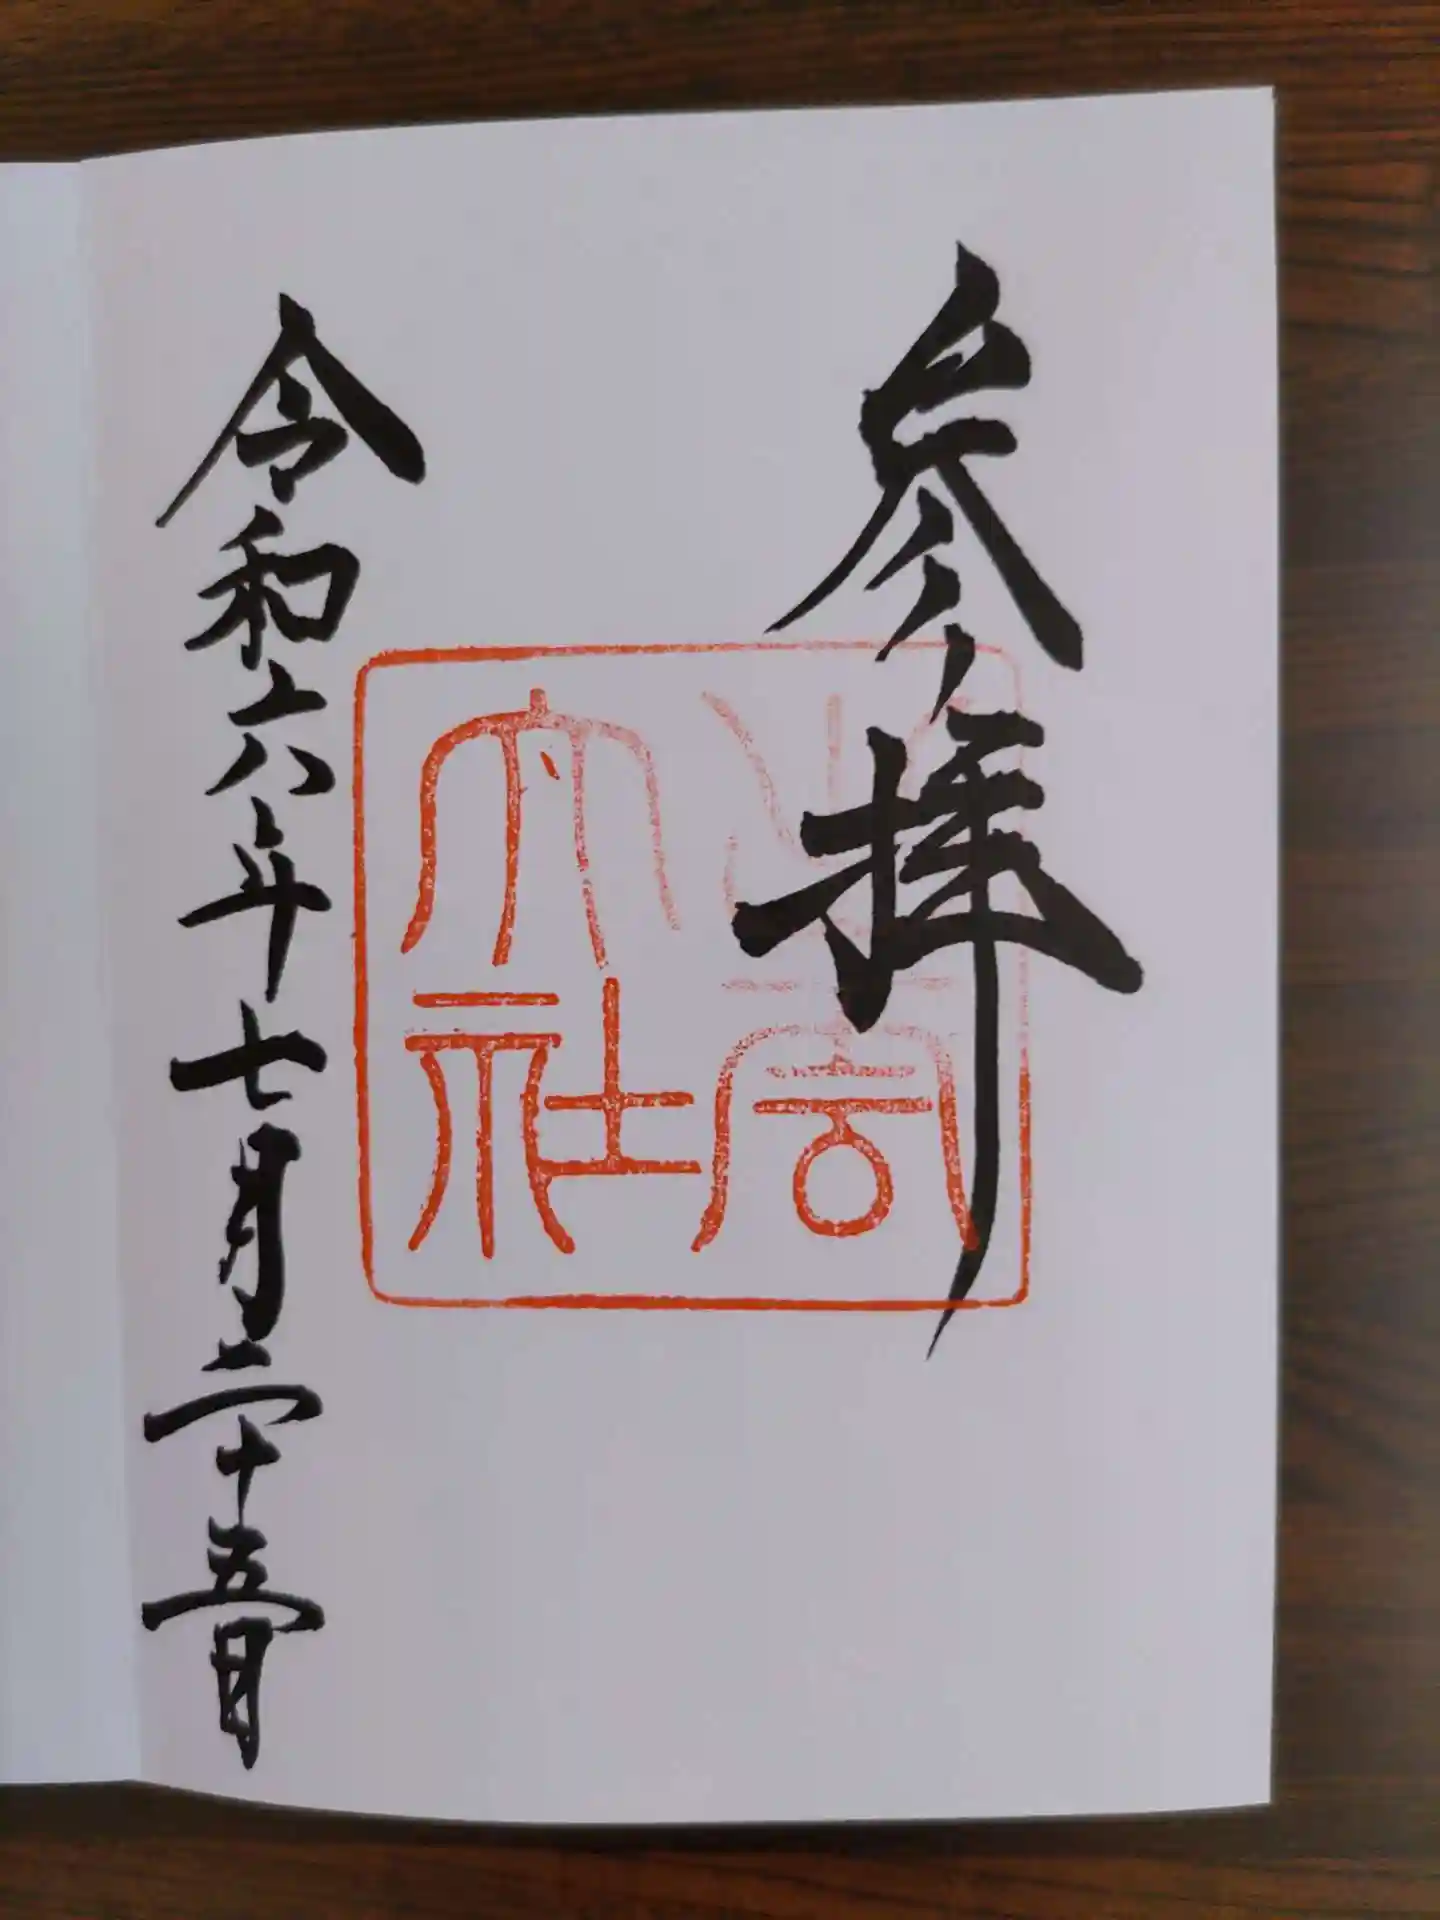 参拝
出雲
大社
令和六年七月二十五日